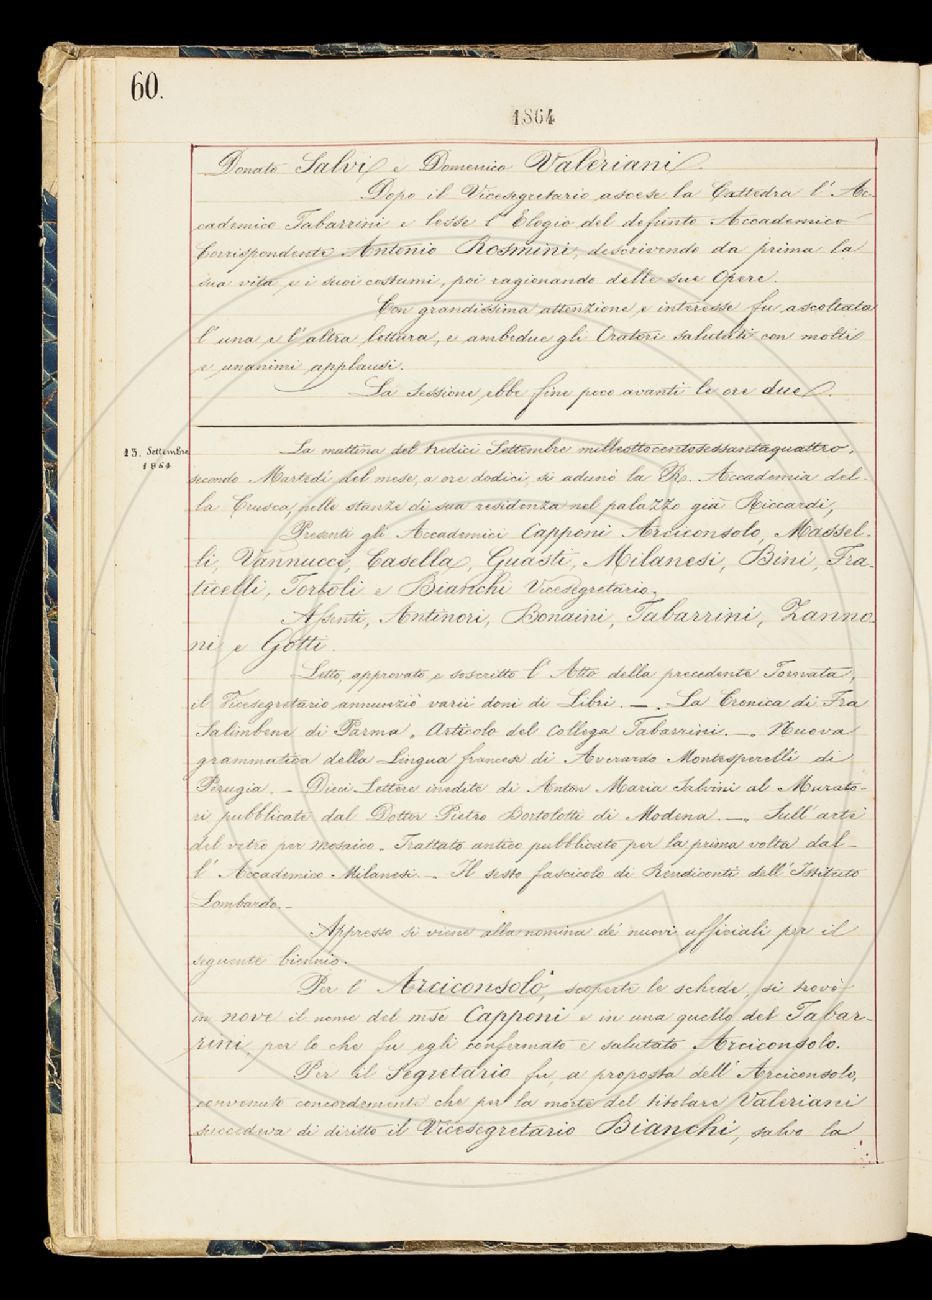 60.
1864
Donato Salvi e Domenico Valeriani.
Dopo il Vicesegretario ascese la Cattedra l' Ac-
cademico Tabarrini e lesse l' Elogio del defunto Accademico
Corrispondente Antonio Rosmini, descrivendo da prima la
sua vita e i suoi costumi, poi ragionando delle sue Opere.
Con grandissima attenzione e interesse fu ascoltata
l' una e l' altra lettura, e ambedue gli Oratori salutati con molti
e unanimi applausi.
La sessione ebbe fine poco avanti le ore due.
13. Settembre
1864
La mattina del tredici Settembre milleottocentosessantaquattro,
secondo Martedì del mese, a ore dodici, si adunò la R. Accademia del-
la Crusca, nelle stanze di sua residenza nel palazzo già Riccardi,
Presenti gli Accademici Capponi Arciconsolo, Massel-
li, Vannucci, Casella, Guasti, Milanesi, Bini, Fra-
ticelli, Tortoli e Bianchi Vicesegretario.
Assenti, Antinori, Bonaini, Tabarrini, Zanno-
ni e Gotti.
Letto, approvato e soscritto l' Atto della precedente Tornata,
il Vicesegretario annunziò varii doni di Libri. — La Cronica di Fra
Salimbene di Parma, Articolo del Collega Tabarrini. — Nuova
grammatica della Lingua francese di Averardo Montesperelli di
Perugia. — Dieci Lettere inedite di Anton Maria Salvini al Murato-
ri pubblicate dal Dottor Pietro Bortolotti di Modena. — Sull' arte
del vetro per mosaico. Trattato antico pubblicato per la prima volta dal-
l' Accademico Milanesi. — Il sesto fascicolo di Rendiconti dell' Istituto
Lombardo. —
Appresso si viene alla nomina de' nuovi ufficiali per il
seguente biennio.
Per l' Arciconsolo, scoperte le schede, si trovò
in nove il nome del mse Capponi e in una quello del Tabar-
rini, per lo che fu egli confermato e salutato Arciconsolo.
Per il Segretario fu, a proposta dell' Arciconsolo,
convenuto concordemente che per la morte del titolare Valeriani
succedeva di diritto il Vicesegretario Bianchi, salvo la